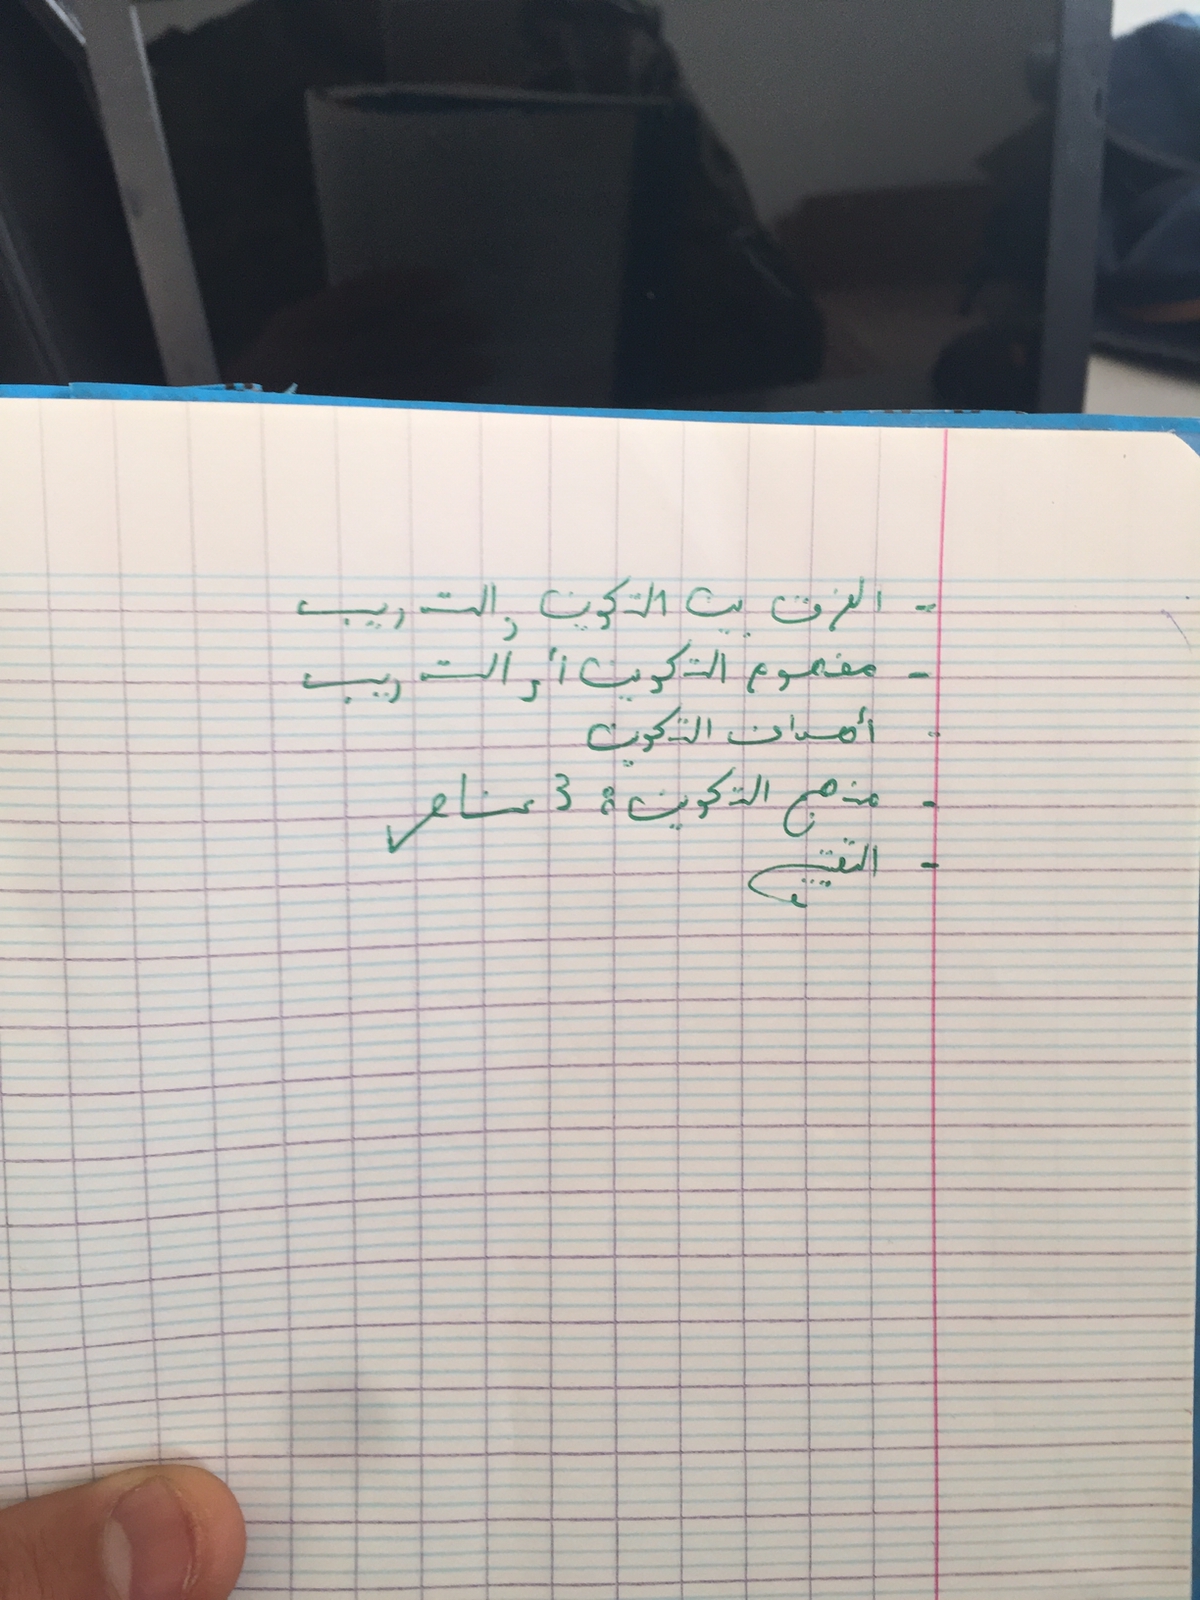 - الفرق بين التكوين والتدريب
- مفهوم التكوين أو التدريب
- أهداف التكوين
- منهج التكوين : 3 عناصر
- التقييم